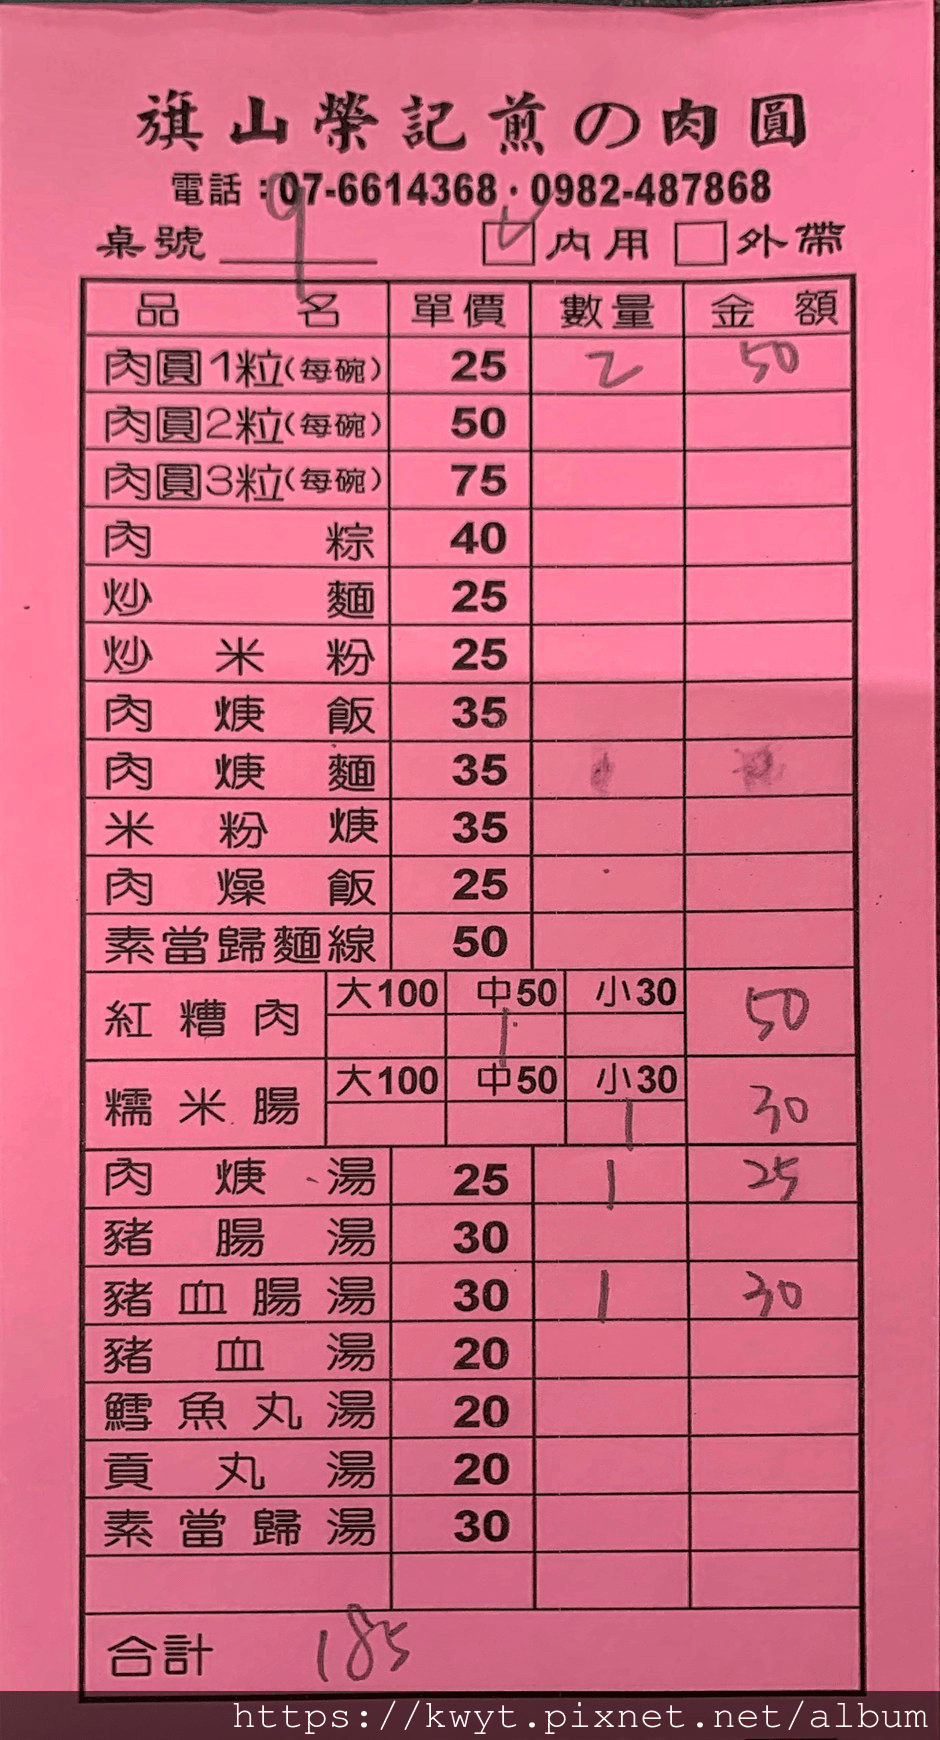 旗山榮記煎の肉圓
電話：07-6614368·0982-487868
桌號 9 ☑內用 □外帶
品名 單價 數量 金額
肉圓1粒(每碗) 25 2 50
肉圓2粒(每碗) 50
肉圓3粒(每碗) 75
肉粽 40
炒麵 25
炒米粉 25
肉焿飯 35
肉焿麵 35
米粉焿 35
肉燥飯 25
素當歸麵線 50
紅糟肉 大100 中50 小30
1 50
糯米腸 大100 中50 小30
1 30
肉焿湯 25 1 25
豬腸湯 30
豬血腸湯 30 1 30
豬血湯 20
鱈魚丸湯 20
貢丸湯 20
素當歸湯 30
合計 185
https://kwyt.pixnet.net/album